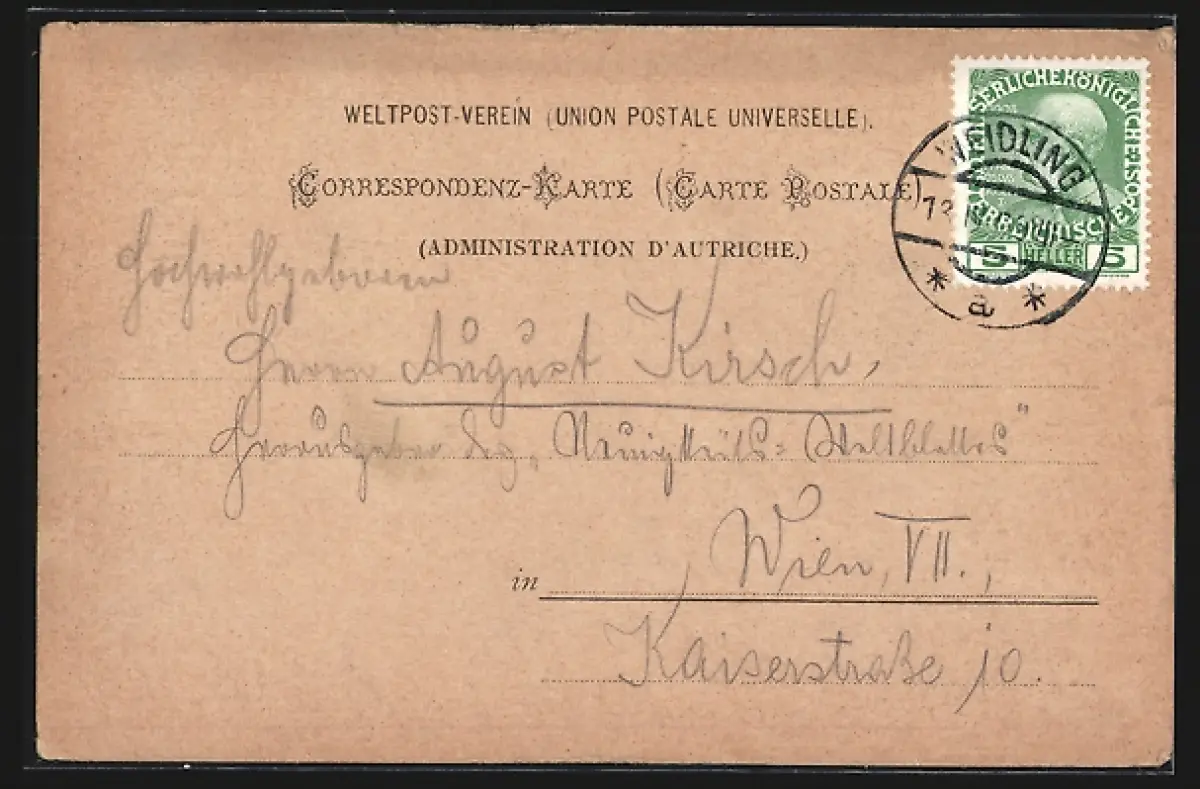 WELTPOST-VEREIN (UNION POSTALE UNIVERSELLE).
CORRESPONDENZ-KARTE (CARTE POSTALE)
(ADMINISTRATION D'AUTRICHE.)
KAISERLICHE KÖNIGLICHE ÖSTERREICHISCHE POST
5 HELLER 5
WEIDLING
* a *
Hochwohlgeboren
Herrn August Kirsch,
Herausgeber des „Neuigkeits=Weltblattes"
in Wien, VII.,
Kaiserstraße 10.